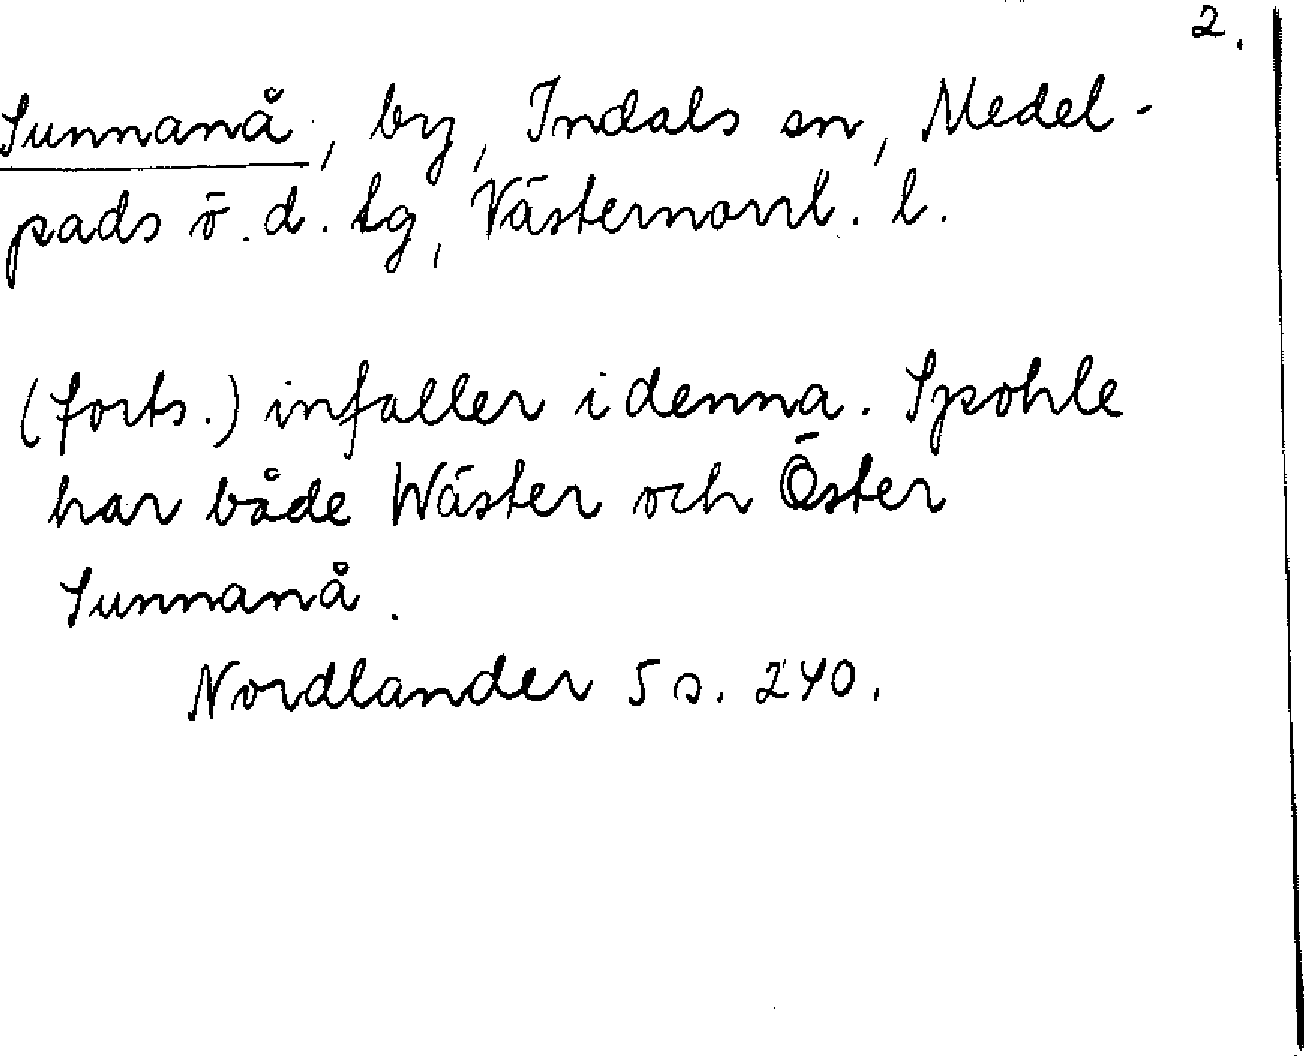 2.
Sunnanå, by, Indals sn, Medel-
pads ö.d. tg, Västernorrl. l.
(forts.) infaller i denna. Spohle
har både Wäster och Öster
Sunnanå.
Nordlander 5 s. 240.